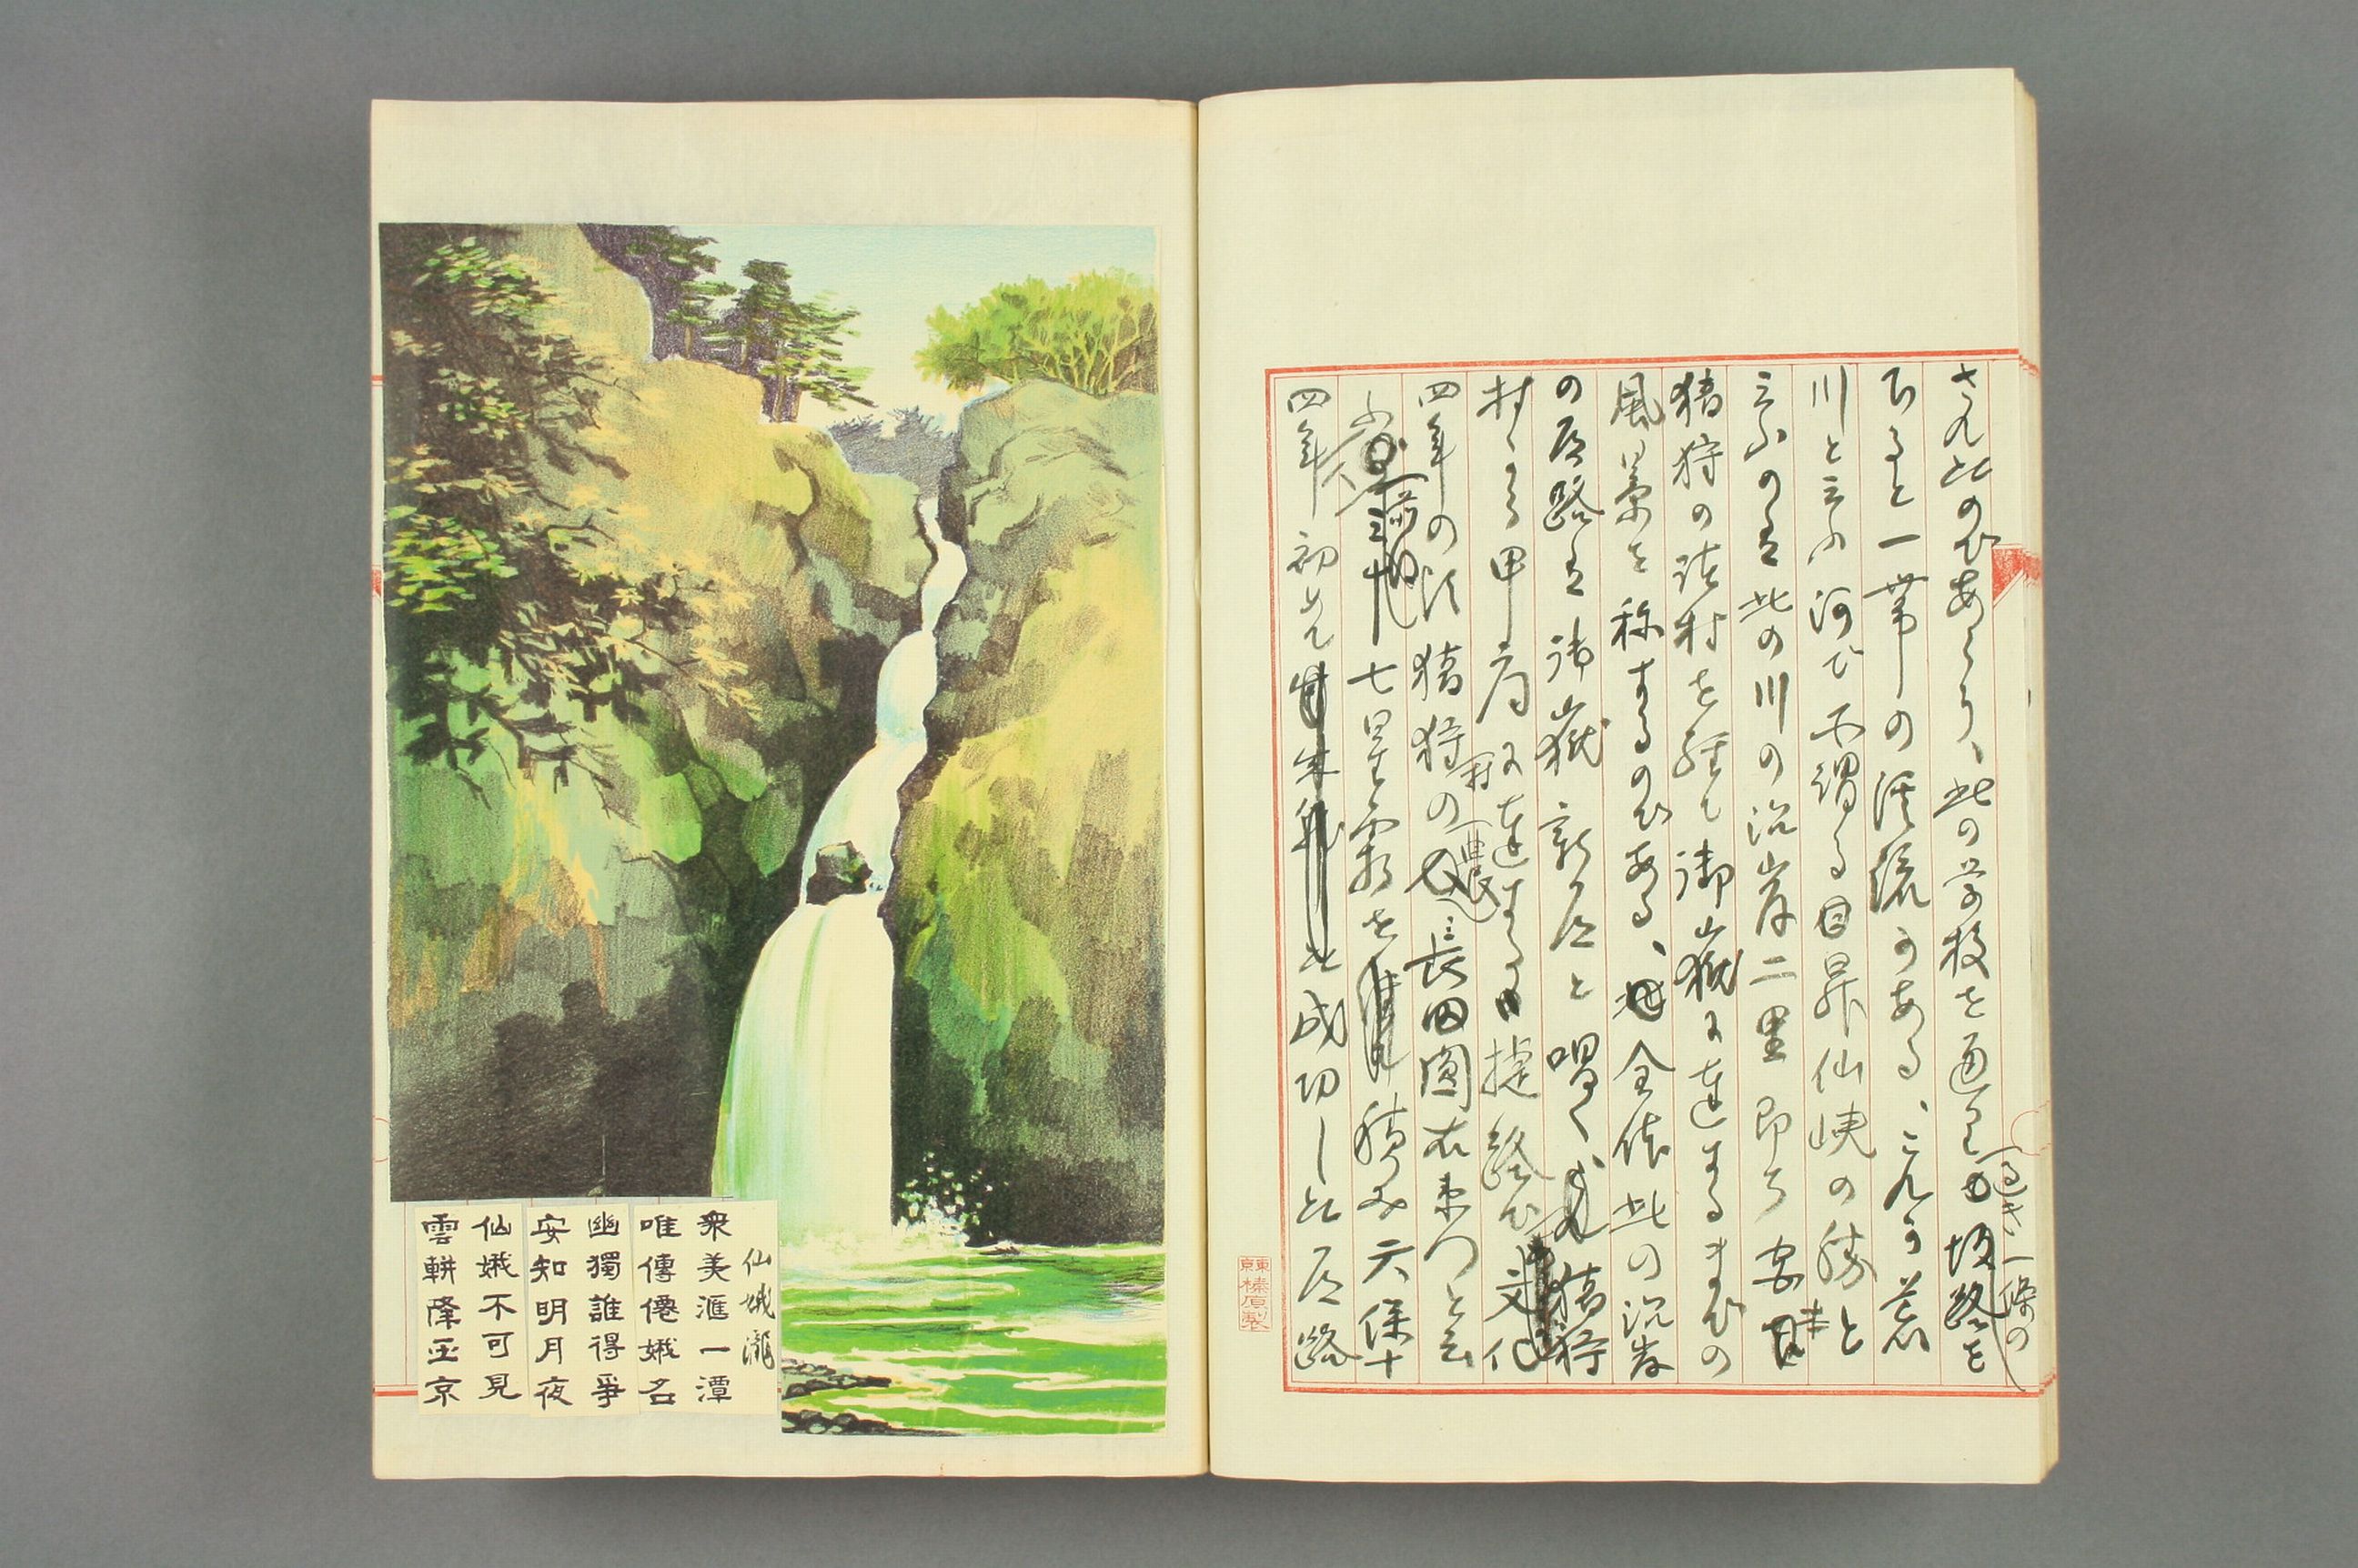 さんⴰのであらう、此の学校を通り過ぎ一條の坂路を
下ると一帯の渓流がある、これが荒
川と云ふ河で所謂る昇仙峡の勝と
云ふのは此の川の沿岸二里即ち
猪狩の諸村を経て御嶽に達するまでの
風景を称するのである、全体此の沿岸
の道路は御嶽新道と唱へ猪狩
村より甲府に達する捷路で文化
四年の頃猪狩村の農長田圓右衛門と云
七星霜を積み天保十
四年初めて成功した道路
東京榛原製
仙娥瀧
衆美滙一潭
唯傳僊娥名
幽獨誰得爭
安知明月夜
仙娥不可見
雲軿降玉京